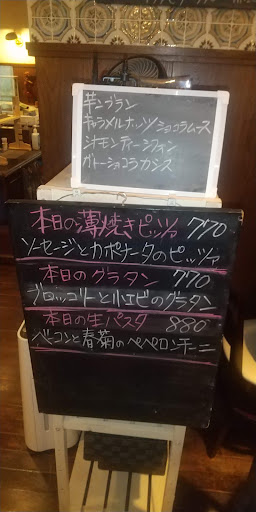 芋モンブラン
キャラメルナッツショコラムース
シナモンティーシフォン
ガトーショコラカシス
本日の薄焼きピッツァ 770
ソーセージとカポナータのピッツァ
本日のグラタン 770
ブロッコリーと小エビのグラタン
本日の生パスタ 880
ベーコンと春菊のペペロンチーニ